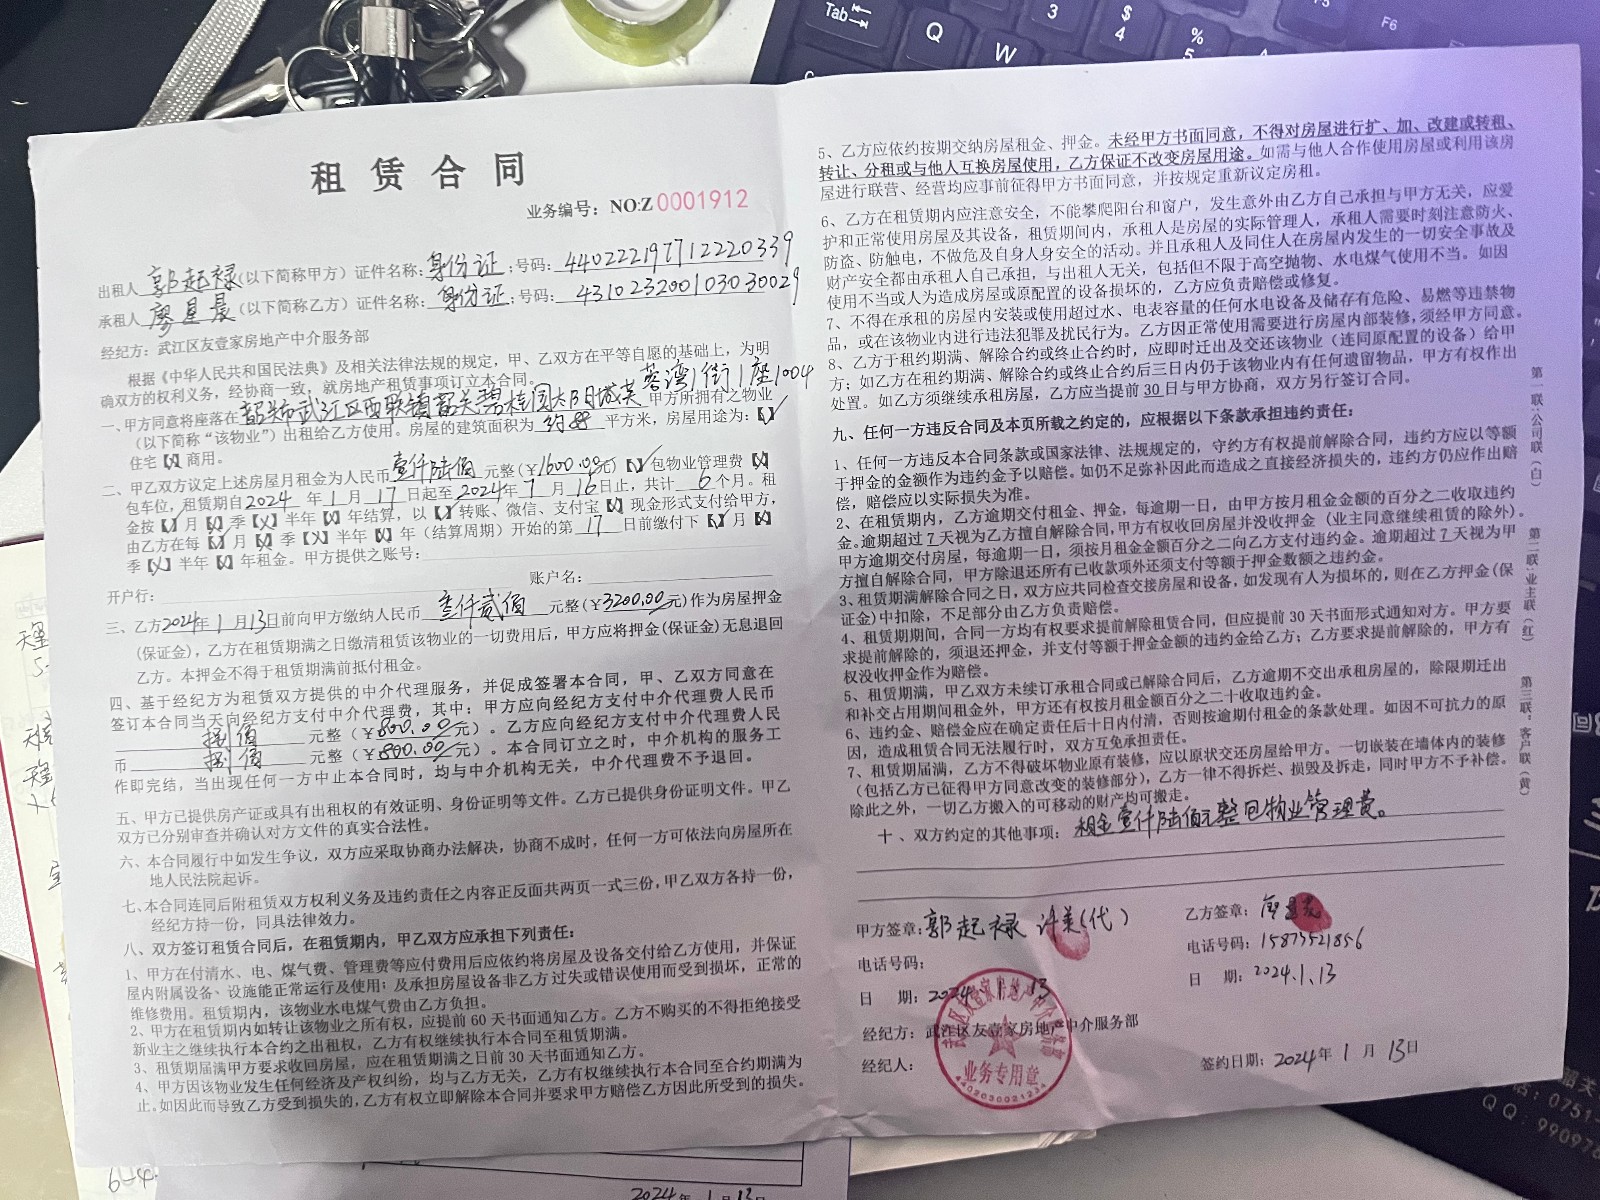 租赁合同
业务编号：NO:Z 0001912
出租人 郭起禄（以下简称甲方）证件名称：身份证；号码：440222197712220339
承租人 廖星晨（以下简称乙方）证件名称：身份证；号码：431023200103030029
经纪方：武江区友壹家房地产中介服务部
根据《中华人民共和国民法典》及相关法律法规的规定，甲、乙双方在平等自愿的基础上，为明
确双方的权利义务，经协商一致，就房地产租赁事项订立本合同。
一、甲方同意将座落在 韶关市武江区西联镇韶关碧桂园太阳城芙蓉湾1街1座1004 甲方所拥有之物业
（以下简称“该物业”）出租给乙方使用。房屋的建筑面积为 约88 平方米，房屋用途为：【✓】
住宅【X】商用。
二、甲乙双方议定上述房屋月租金为人民币 壹仟陆佰 元整（¥1600.00元）【✓】包物业管理费【X】
包车位，租赁期自2024年1月17日起至2024年7月16日止，共计6个月。租
金按【✓】月【X】季【X】半年【X】年结算，以【✓】转账、微信、支付宝【X】现金形式支付给甲方，
由乙方在每【✓】月【X】季【X】半年【X】年（结算周期）开始的第 17 日前缴付下【✓】月【X】
季【X】半年【X】年租金。甲方提供之账号：
开户行： 账户名：
三、乙方2024年1月13日前向甲方缴纳人民币 壹仟贰佰 元整（¥3200.00元）作为房屋押金
（保证金），乙方在租赁期满之日缴清租赁该物业的一切费用后，甲方应将押金（保证金）无息退回
乙方。本押金不得于租赁期满前抵付租金。
四、基于经纪方为租赁双方提供的中介代理服务，并促成签署本合同，甲、乙双方同意在
签订本合同当天向经纪方支付中介代理费，其中：甲方应向经纪方支付中介代理费人民币
捌佰 元整（¥800.00元）。乙方应向经纪方支付中介代理费人民
币 捌佰 元整（¥800.00元）。本合同订立之时，中介机构的服务工
作即完结，当出现任何一方中止本合同时，均与中介机构无关，中介代理费不予退回。
五、甲方已提供房产证或具有出租权的有效证明、身份证明等文件。乙方已提供身份证明文件。甲乙
双方已分别审查并确认对方文件的真实合法性。
六、本合同履行中如发生争议，双方应采取协商办法解决，协商不成时，任何一方可依法向房屋所在
地人民法院起诉。
七、本合同连同后附租赁双方权利义务及违约责任之内容正反面共两页一式三份，甲乙双方各持一份，
经纪方持一份，同具法律效力。
八、双方签订租赁合同后，在租赁期内，甲乙双方应承担下列责任：
1、甲方在付清水、电、煤气费、管理费等应付费用后应依约将房屋及设备交付给乙方使用，并保证
屋内附属设备、设施能正常运行及使用；及承担房屋设备非乙方过失或错误使用而受到损坏，正常的
维修费用。租赁期内，该物业水电煤气费由乙方负担。
2、甲方在租赁期内如转让该物业之所有权，应提前60天书面通知乙方。乙方不购买的不得拒绝接受
新业主之继续执行本合约之出租权，乙方有权继续执行本合同至租赁期满。
3、租赁期届满甲方要求收回房屋，应在租赁期满之日前30天书面通知乙方。
4、甲方因该物业发生任何经济及产权纠纷，均与乙方无关，乙方有权继续执行本合同至合约期满为
止。如因此而导致乙方受到损失的，乙方有权立即解除本合同并要求甲方赔偿乙方因此所受到的损失。
5、乙方应依约按期交纳房屋租金、押金。未经甲方书面同意，不得对房屋进行扩、加、改建或转租、
转让、分租或与他人互换房屋使用，乙方保证不改变房屋用途。如需与他人合作使用房屋或利用该房
屋进行联营、经营均应事前征得甲方书面同意，并按规定重新议定房租。
6、乙方在租赁期内应注意安全，不能攀爬阳台和窗户，发生意外由乙方自己承担与甲方无关，应爱
护和正常使用房屋及其设备，租赁期间内，承租人是房屋的实际管理人，承租人需要时刻注意防火、
防盗、防触电，不做危及自身人身安全的活动。并且承租人及同住人在房屋内发生的一切安全事故及
财产安全都由承租人自己承担，与出租人无关，包括但不限于高空抛物、水电煤气使用不当。如因
使用不当或人为造成房屋或原配置的设备损坏的，乙方应负责赔偿或修复。
7、不得在承租的房屋内安装或使用超过水、电表容量的任何水电设备及储存有危险、易燃等违禁物
品，或在该物业内进行违法犯罪及扰民行为。乙方因正常使用需要进行房屋内部装修，须经甲方同意。
8、乙方于租约期满、解除合约或终止合约时，应即时迁出及交还该物业（连同原配置的设备）给甲
方；如乙方在租约期满、解除合约或终止合约后三日内仍于该物业内有任何遗留物品，甲方有权作出
处置。如乙方须继续承租房屋，乙方应当提前30日与甲方协商，双方另行签订合同。
九、任何一方违反合同及本页所载之约定的，应根据以下条款承担违约责任：
1、任何一方违反本合同条款或国家法律、法规规定的，守约方有权提前解除合同，违约方应以等额
于押金的金额作为违约金予以赔偿。如仍不足弥补因此而造成之直接经济损失的，违约方仍应作出赔
偿，赔偿应以实际损失为准。
2、在租赁期内，乙方逾期交付租金、押金，每逾期一日，由甲方按月租金金额的百分之二收取违约
金。逾期超过7天视为乙方擅自解除合同，甲方有权收回房屋并没收押金（业主同意继续租赁的除外）。
甲方逾期交付房屋，每逾期一日，须按月租金金额百分之二向乙方支付违约金。逾期超过7天视为甲
方擅自解除合同，甲方除退还所有已收款项外还须支付等额于押金数额之违约金。
3、租赁期满解除合同之日，双方应共同检查交接房屋和设备，如发现有人为损坏的，则在乙方押金（保
证金）中扣除，不足部分由乙方负责赔偿。
4、租赁期期间，合同一方均有权要求提前解除租赁合同，但应提前30天书面形式通知对方。甲方要
求提前解除的，须退还押金，并支付等额于押金金额的违约金给乙方；乙方要求提前解除的，甲方有
权没收押金作为赔偿。
5、租赁期满，甲乙双方未续订承租合同或已解除合同后，乙方逾期不交出承租房屋的，除限期迁出
和补交占用期间租金外，甲方还有权按月租金额百分之二十收取违约金。
6、违约金、赔偿金应在确定责任后十日内付清，否则按逾期付租金的条款处理。如因不可抗力的原
因，造成租赁合同无法履行时，双方互免承担责任。
7、租赁期届满，乙方不得破坏物业原有装修，应以原状交还房屋给甲方。一切嵌装在墙体内的装修
（包括乙方已征得甲方同意改变的装修部分），乙方一律不得拆烂、损毁及拆走，同时甲方不予补偿。
除此之外，一切乙方搬入的可移动的财产均可搬走。
十、双方约定的其他事项：租金壹仟陆佰元整包物业管理费。
甲方签章：郭起禄 许美（代）
电话号码：
日 期：2024.1.13
经纪方：武江区友壹家房地产中介服务部
经纪人：
乙方签章：廖星晨
电话号码：15873521856
日 期：2024.1.13
签约日期：2024年1月13日
武江区友壹家房地产中介服务部
业务专用章
4402030021234
第一联：公司联（白）
第二联：业主联（红）
第三联：客户联（黄）
2024年1月13日
6-4
Tab
Q
W
3
$
4
%
5
F5
F6
韶关
话：0751-
QQ：990976